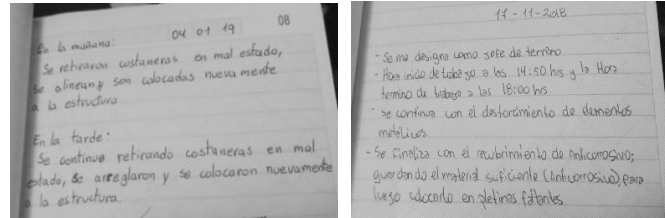 04 01 19
08
En la mañana:
Se retiraron costaneras en mal estado,
se alinean y son colocadas nueva mente
a la estructura
En la tarde:
Se continua retirando costaneras en mal
estado, se arreglaron y se colocaron nuevamente
a la estructura.
17-11-2018
- Se me designa como jefe de terreno
- Hora inicio de trabajo a las 14:50 hrs y la Hora
termino de trabajo a las 18:00 hrs
- se continua con el destorcimiento de elementos
metalicos.
- Se Finaliza con el recubrimiento de Anticorrosivo;
guardando el material suficiente (Anticorrosivo), para
luego colocarlo en pletinas faltantes